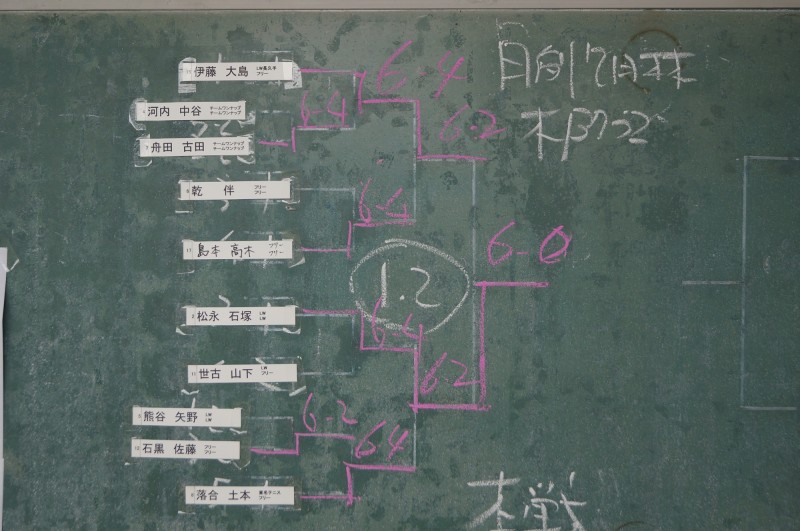 伊藤 大島 フリー
6-4
河内 中谷 チームワンナップ チームワンナップ
6-4
6-2
舟田 古田 チームワンナップ チームワンナップ
乾 伴 フリー フリー
島本 高木 フリー フリー
6-0
1.2
松永 石塚 LW LW
6-4
世古 山下 LW フリー
6.2
熊谷 矢野 LW LW
6-2
石黒 佐藤 フリー フリー
64
落合 土本 フリー
本戦